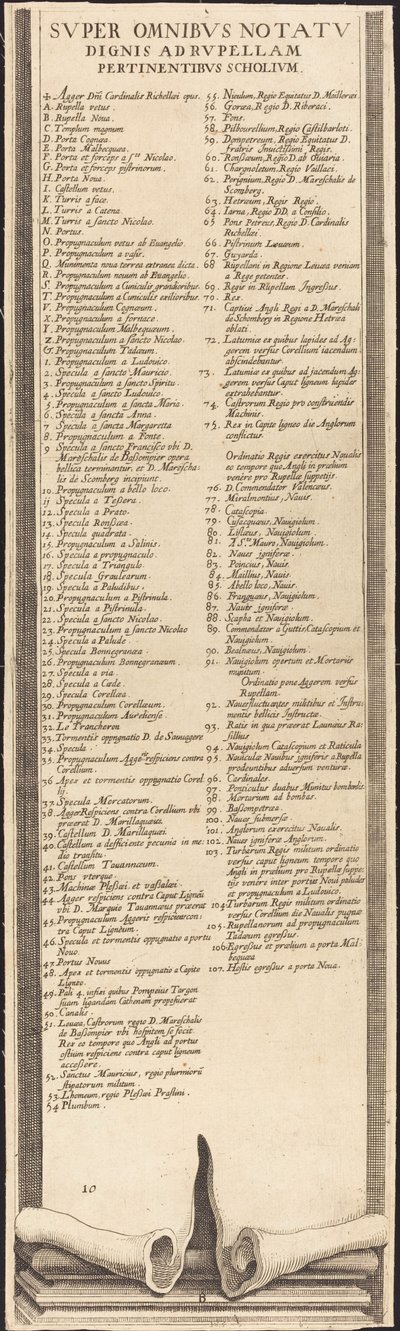 SVPER OMNIBVS NOTATV
DIGNIS AD RVPELLAM
PERTINENTIBVS SCHOLIVM.
✠ Agger Dñi Cardinalis Richellæi opus.
A. Rupella vetus.
B. Rupella Noua.
C. Templum magnum
D. Porta Cognæa.
E. Porta Malbecquea.
F. Porta et forceps a sto Nicolao.
G. Porta et forceps pistrinorum.
H. Porta Noua.
I. Castellum vetus.
K. Turris a face.
L. Turris a Catena.
M. Turris a sancto Nicolao.
N. Portus.
O. Propugnaculum vetus ab Euangelio.
P. Propugnaculum a vasis.
Q. Munimenta noua terrea extranea dicta.
R. Propugnaculum nouum ab Euangelio.
S. Propugnaculum a Cuniculis grandioribus.
T. Propugnaculum a Cuniculis exilioribus.
V. Propugnaculum Cognæum.
X. Propugnaculum a fornace.
Y. Propugnaculum Malbequæum.
Z. Propugnaculum a sancto Nicolao.
&. Propugnaculum Tadæum.
1. Propugnaculum a Ludouico.
2. Specula a sancto Mauricio.
3. Propugnaculum a sancto Spiritu.
4. Specula a sancto Ludouico.
5. Propugnaculum a sancta Maria.
6. Specula a sancta Anna.
7 Specula a sancta Margaretta
8. Propugnaculum a Ponte.
9 Specula a sancto Francisco vbi D.
Mareschalis de Bassompier opera
bellica terminantur, et D. Marescha-
lis de Scomberg incipiunt.
10. Propugnaculum a bello loco.
11 Specula a Tessera.
12. Specula a Prato.
13. Specula Ronsæa.
14. Specula quadrata.
15. Propugnaculum a Salinis.
16. Specula a propugnaculo.
17. Specula a Triangulo.
18. Specula Graulearum.
19. Specula a Paludibus.
20. Propugnaculum a Pistrinula.
21. Specula a Pistrinula.
22. Specula a sancto Nicolao.
23. Propugnaculum a sancto Nicolao
24. Specula a Palude.
25. Specula Bonnegranæa.
26. Propugnaculum Bonnegranæum.
27. Specula a via.
28. Specula a Cæde.
29. Specula Corellæa.
30. Propugnaculum Corellæum.
31. Propugnaculum Aurehense
32. Le Trancheron
33. Tormentis oppugnatio D. de Sauuggere
34. Specula.
35. Propugnaculum Aggeris respiciens contra
Corellium.
36 Apex et tormentis oppugnatio Corel
lij.
37. Specula Morcatorum.
38. Agger Respiciens contra Corellium vbi
præerat D. Marillaquæus.
39. Castellum D. Marillaquæi.
40. Castellum a desficiente pecunia in me-
dio transitu.
41. Castellum Tauannæum.
42. Pons vterque.
43. Machinæ Plessæi et vassalæi.
44. Agger respiciens contra Caput Ligneũ
vbi D. Marquio Tauannæus præerat
45. Propugnaculum Aggeris respiciens con-
tra Caput Ligneum.
46. Specula et tormentis oppugnatio a portu
Nouo.
47. Portus Nouus
48. Apex et tormentis oppugnatio a Capite
Ligneo.
49. Pali 4. infixi quibus Pompeius Targon
suam ligandam Cathenam proposuerat
50. Canalis.
51. Leuæa, Castrorum regio D. Mareschalis
de Bassompier vbi hospitem se fecit
Rex eo tempore quo Angli ad portus
ostium respiciens contra caput ligneum
accessere.
52. Sanctus Mauricius, regio plurmiorũ
stipatorum militum.
53. Lhomeum, regio Plessæi Praslini.
54 Plumbum.
55. Nieulum, Regio Equitatus D. Mailloræi.
56. Goræa, Regio D. Riberaci.
57. Fons.
58. Pilbourellum, Regio Castilbarloti.
59. Dompetreum, Regio Equitatus D.
fratris Inuictissimi Regis.
60. Ronsæum, Regio D. ab Ouiaria.
61. Chargnoletum, Regio Vaillaci.
62. Perignium, Regio D. Mareschalis de
Scomberg.
63. Hetræum, Regis Regio.
64. Iarna, Regio DD. a Consilio.
65 Pons Petreus, Regio D. Cardinalis
Richellæi.
66. Pistrinum Leuæum.
67. Guyarda.
68 Rupellani in Regione Leuæa veniam
a Rege petentes.
69. Regis in Rupellam Ingressus.
70. Rex.
71. Captiui Angli Regi a D. Mareschali
de Schomberg in Regione Hetræa
oblati.
72. Latumiæ ex quibus lapides ad Ag-
gerem versus Corellium iacendum
abscindebantur.
73. Latumiæ ex quibus ad jacendum Ag-
gerem versus Caput ligneum lapides
extrahebantur.
74. Castrorum Regio pro construendis
Machinis.
75. Rex in Capite ligneo die Anglorum
conflictus.
Ordinatio Regis exercitus Naualis
eo tempore quo Angli in prælium
venère pro Rupellæ suppetijs.
76. D. Commendator Valencæus.
77. Miralmontius, Nauis.
78. Catascopia.
79. Cusacquæus, Nauigiolum.
80. Lislæus, Nauigiolum.
81. A Sto Mauro, Nauigiolum.
82. Naues igniferæ.
83. Poincius, Nauis.
84. Maillius, Nauis.
85. Abello loco, Nauis.
86. Franguæus, Nauigiolum.
87. Nauis igniferæ.
88. Scapha et Nauigiolum.
89. Commendator a Guttis, Catascopium et
Nauigiolum.
90. Bealnæus, Nauigiolum.
91. Nauigiolum opertum et Mortariis
munitum.
Ordinatio pone Aggerem versus
Rupellam.
92. Naues fluctuantes militibus et Instru-
mentis bellicis Instructæ.
93. Ratis in qua præerat Launæus Ra-
sillius
94. Nauigiolum Catascopium et Raticula
95. Nauiculæ Nauibus igniferis a Rupella
prodeuntibus aduersum venturæ.
96. Cardinales.
97. Ponticulus duabus Munitus bombardis.
98. Mortarium ad bombas.
99. Bassompetræa.
100. Naues submersæ.
101. Anglorum exercitus Naualis.
102. Naues igniferæ Anglorum.
103. Turbarum Regis militum ordinatio
versus caput ligneum tempore quo
Angli in prælium pro Rupellæ suppe-
tijs venère inter portus Noui paludes
et propugnaculum a Ludouico.
104 Turbarum Regis militum ordinatio
versus Corellium die Naualis pugnæ
105. Rupellanorum ad propugnaculum
Tadæum egressus.
106 Egressus et prælium a porta Mal-
bequæa
107. Hostis egressus a porta Noua.
10
B